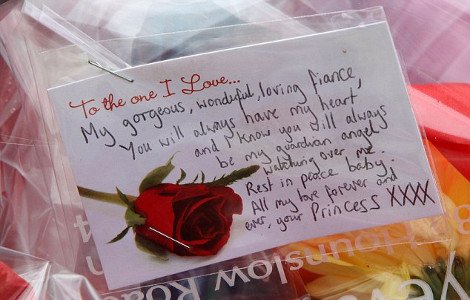 To the one I Love...
My gorgeous, wonderful, loving fiance,
You will always have my heart
and I know you will always
be my guardian angel
watching over me.
Rest in peace baby.
All my love forever and
ever, your Princess XXXX
Hounslow Road